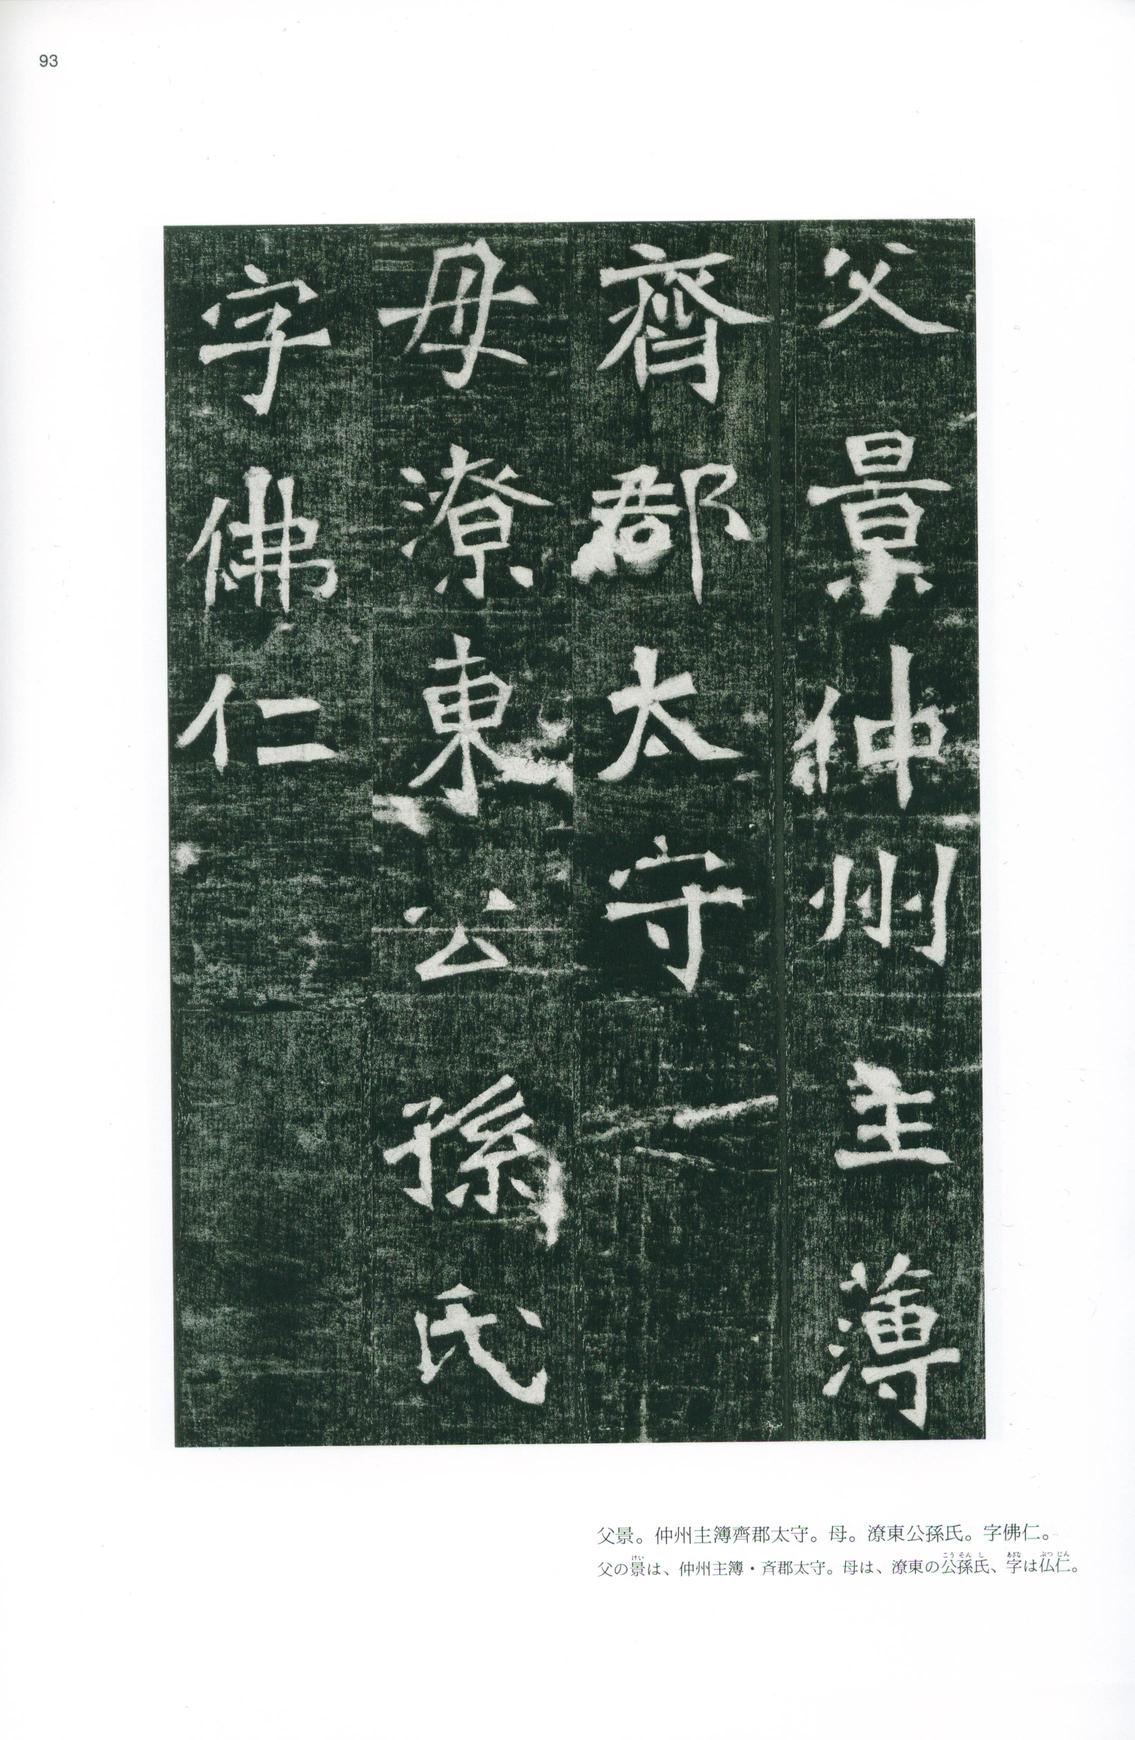 93
父景仲州主薄
齊郡太守
母潦東公孫氏
字佛仁
父景。仲州主簿齊郡太守。母。潦東公孫氏。字佛仁。
父の景は、仲州主簿・斉郡太守。母は、潦東の公孫氏、字は仏仁。